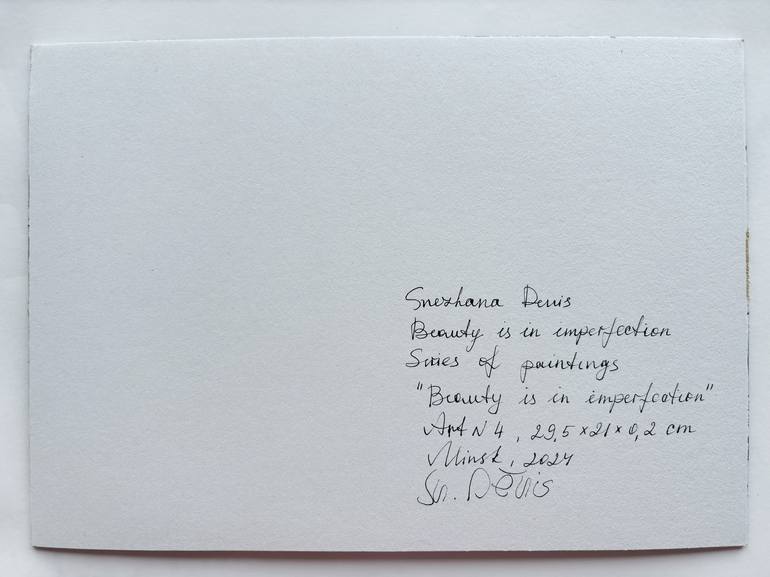 Snezhana Denis
Beauty is in imperfection
Series of paintings
"Beauty is in imperfection"
Art N 4, 29,5 × 21 × 0,2 cm
Minsk, 2024
Sn. Denis